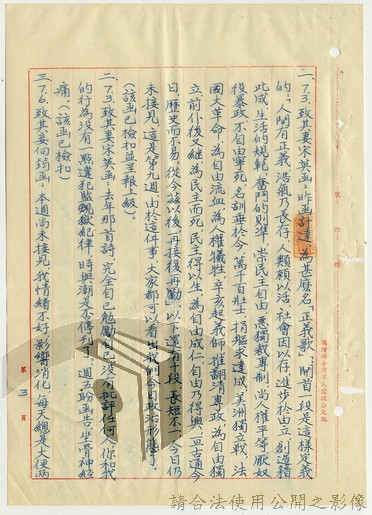 一、7.3.致其妻宋英函:昨函計達、為甚麼名「正義歌」;開首一段是這樣定義
的:「人間有正義、浩氣乃長存、人類賴以活、社會因以存、進步於由立、創造藉
此成、生活的規範、奮鬥的則準、崇民主自由、惡獨裁專制、尚人權平等、厭奴
役暴政、不自由寧死、名訓垂於今、萬千百壯士、捐軀求達成、美洲獨立戰、法
國大革命、為自由流血、為人權犧牲、辛亥起義師、推翻清專政、為自由獨
立、前仆後又繼、為民主而死、民主得以生、為自由成仁、自由乃得興、一直古通今
日、歷史而不易、從今該以後、再接後再勵」以下還有十段、長短不一、今日仍
未接見、這是第九週、由於這件事、大家都可以看出我們今日政治形態了、
(該函已檢扣並呈報上級)。
二、7.3.致其妻宋英函:去年那首詩、完全自己勉勵自己、沒有批評任何人、你和我
的行為沒有一點違犯監規獄紀律、時與潮是否停刊、週五盼函告、坐骨神經
痛、(該函已檢扣)
三、7.6.致其妾向筠函:本週尚未接見、我情緒不好、影響消化、每天總是大便兩
第3頁
請合法使用公開之影像